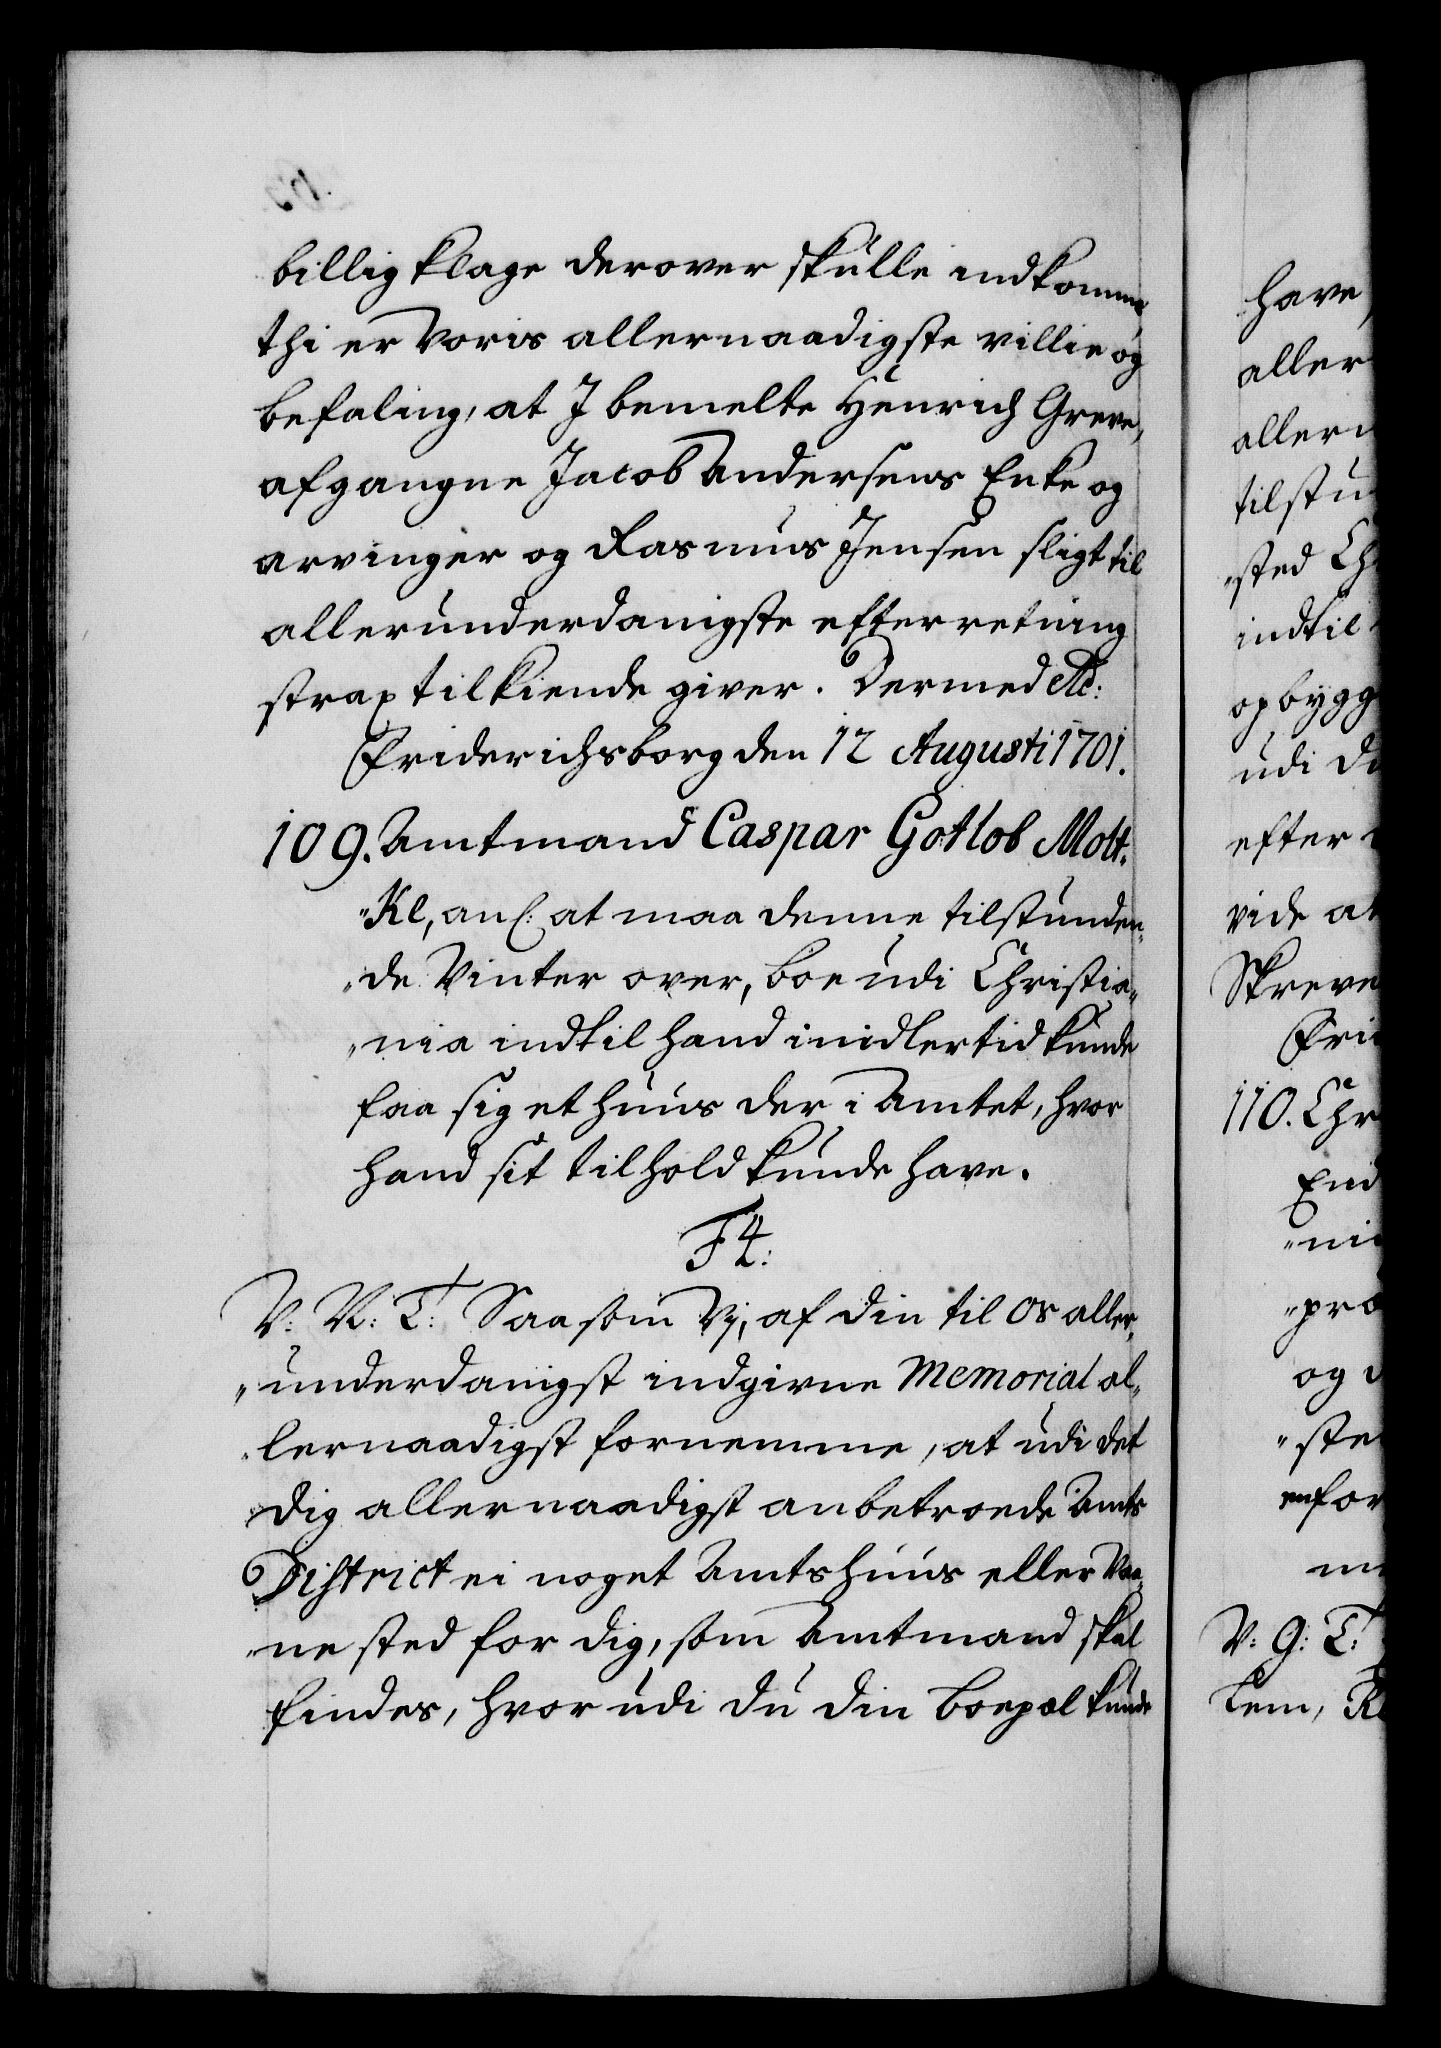 billig klage derover skulle indkomme
thi er Voris allernaadigste villie og
befaling, at I bemelte Henrich Greve,
afgangne Jacob Andersens Enke og
arvinger og Rasmus Jensen sligt til
allerunderdanigste efterretning
strax tilkiende giver. Dermed etc:
Friderichsborg den 12 Augusti 1701.
109. Amtmand Caspar Gotlob Molt-
"Kl, anl: at maa denne tilstunden-
"de Vinter over, boe udi Christia-
"nia indtil hand imidlertid kunde
faa sig et huus der i Amtet, hvor
hand sit tilhold kunde have.
F4:
V: N: T: Saasom Vj, af din til Os aller-
"underdanigst indgivne Memorial al-
"lernaadigst fornemme, at udi det
dig allernaadigst anbetroede Amts
District ei noget Amtshuus eller Vaa-
"ne sted for dig, som Amtmand skal
findes, hvor udi du din boepæl kunde
have,
aller
allern
tilstu
"sted Ch
indtil
opbygg
udi d
efter
vide at
Skreve
Fri
110. Chr
End
"ni
"pro
og
"ste
enfor
V: G: T:
lem, R